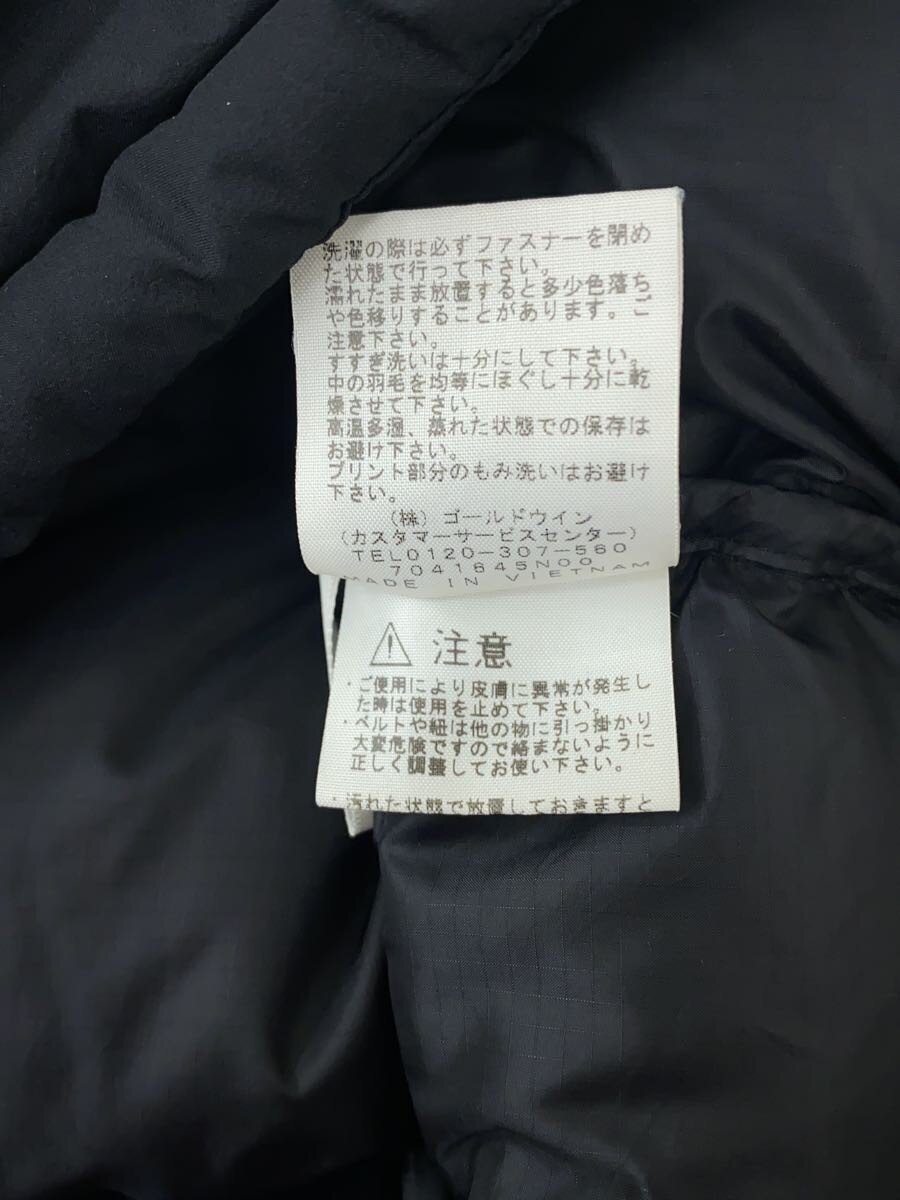 洗濯の際は必ずファスナーを閉め
た状態で行って下さい。
濡れたまま放置すると多少色落ち
や色移りすることがあります。ご
注意下さい。
すすぎ洗いは十分にして下さい。
中の羽毛を均等にほぐし十分に乾
燥させて下さい。
高温多湿、蒸れた状態での保存は
お避け下さい。
プリント部分のもみ洗いはお避け
下さい。
(株)ゴールドウイン
(カスタマーサービスセンター)
TEL0120-307-560
7041645N00
MADE IN VIETNAM
注意
・ご使用により皮膚に異常が発生し
た時は使用を止めて下さい。
・ベルトや紐は他の物に引っ掛かり
大変危険ですので絡まないように
正しく調整してお使い下さい。
・汚れた状態で放置しておきますと